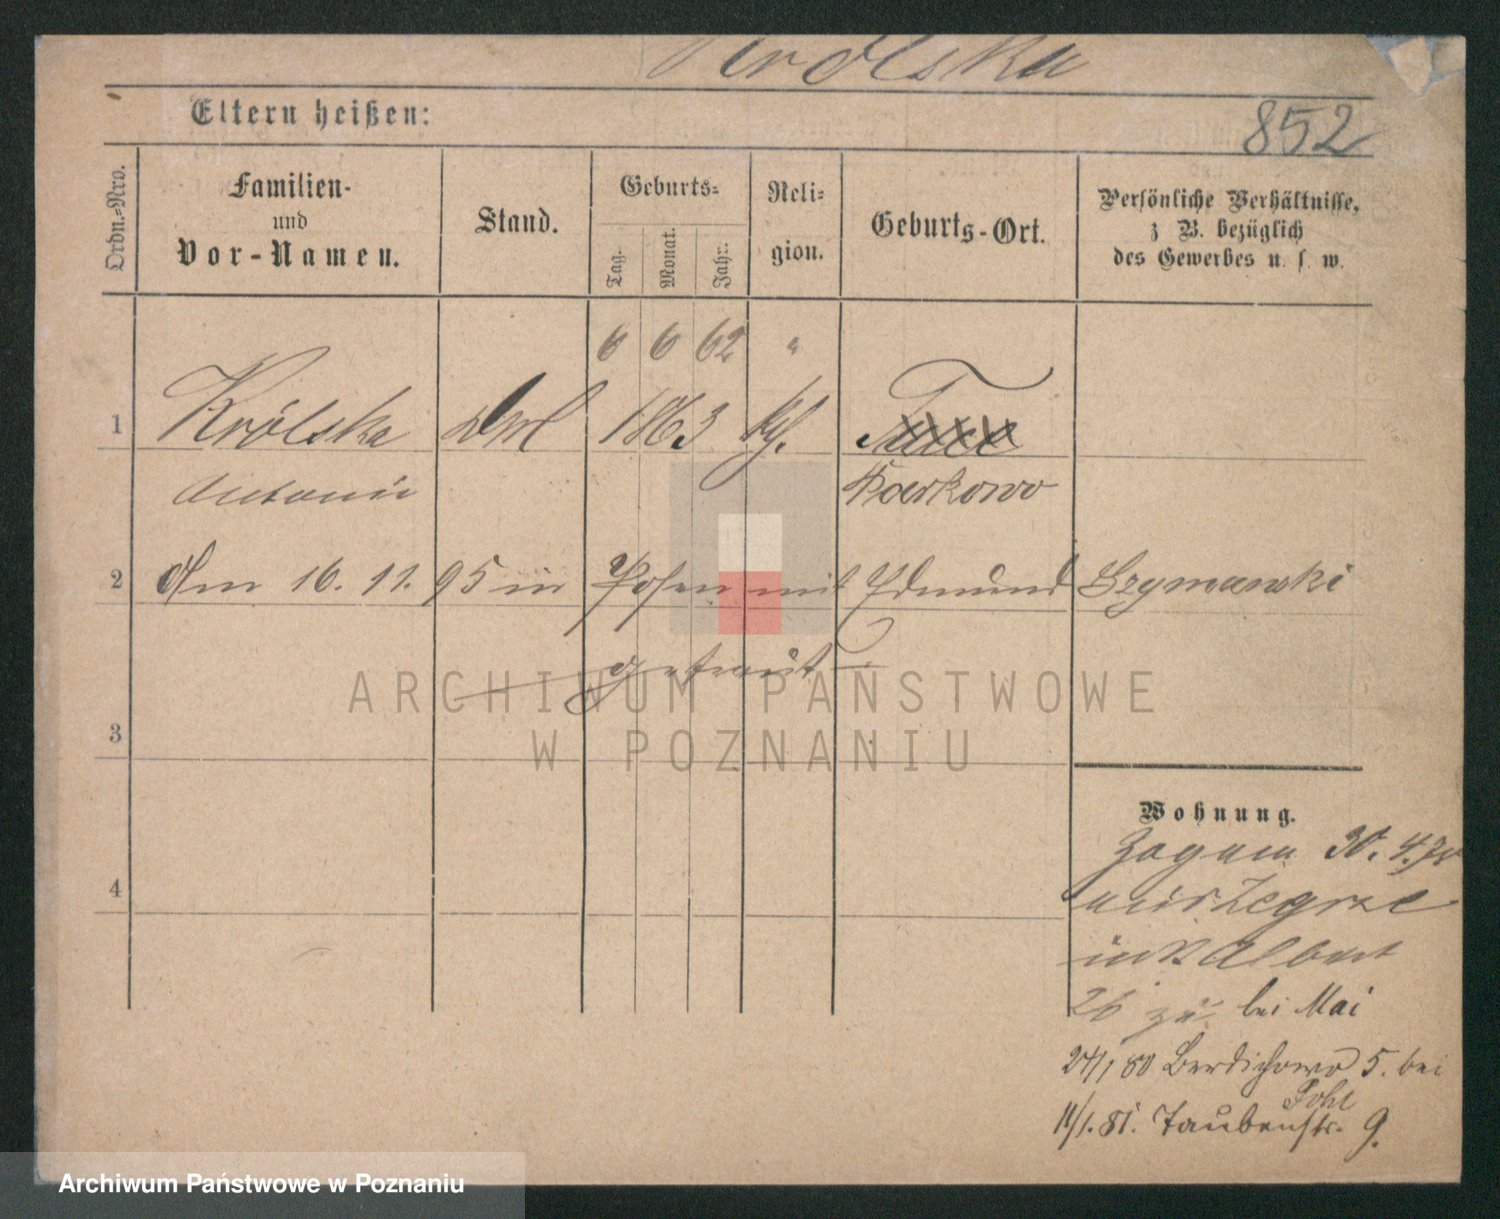 Królska
Eltern heißen:
852
Ordn.-Nro.
Familien-
und
Vor-Namen.
Stand.
Geburts-
Tag.
Monat.
Jahr.
Reli-
gion.
Geburts-Ort.
Persönliche Verhältnisse,
z B. bezüglich
des Gewerbes u. s. w.
6 6 62 "
1 Królska 1863
Antonie
2 Am 16. 11. 95 in Posen mit Edmund Szymanski
getraut
3
4
Wohnung.
Zogum 30. 4.
aus Zegrze
26 zu bei Mai
24/1 80 Berdichowo 5. bei
Pohl
11/1. 81. Taubenstr. 9.
ARCHIWUM PAŃSTWOWE
W POZNANIU
Archiwum Państwowe w Poznaniu